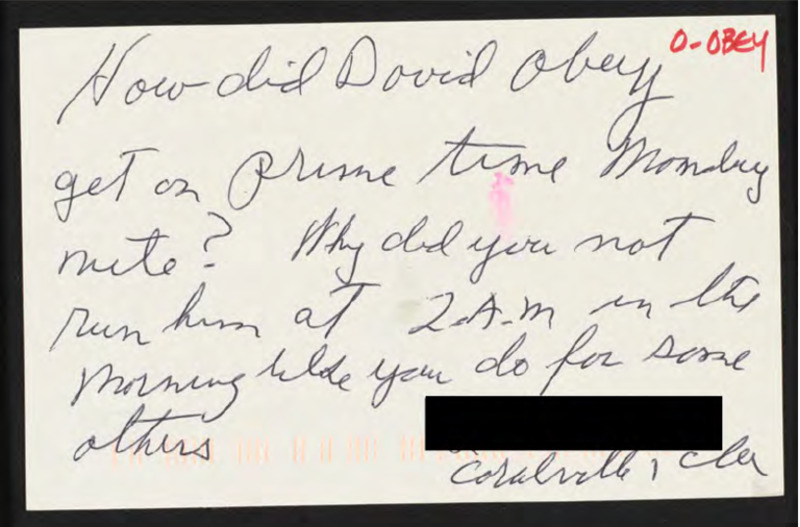 O-OBEY
How did David Obey
get on prime time Monday
nite? Why did you not
run him at 2.A.M in the
Morning like you do for some
others
Coralville,